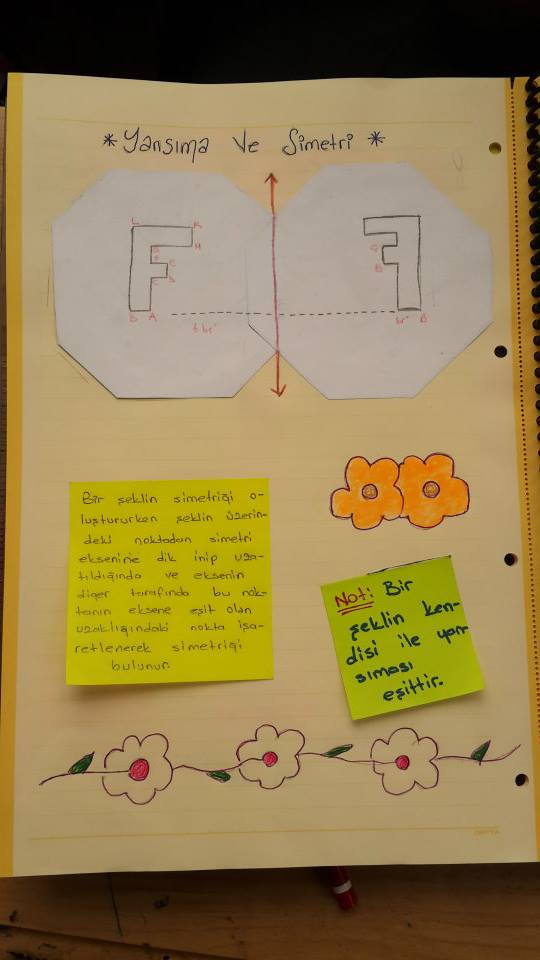 * Yansıma Ve Simetri *
L K
H
G
F E
C D
B A
6 br
G
E
br B
Bir şeklin simetriği o-
luştururken şeklin üzerin-
deki noktadan simetri
eksenine dik inip uza-
tıldığında ve eksenin
diğer tarafında bu nok-
tanın eksene eşit olan
uzaklığındaki nokta işa-
retlenerek simetriği
bulunur.
Not: Bir
şeklin ken-
disi ile yan-
sıması
eşittir.